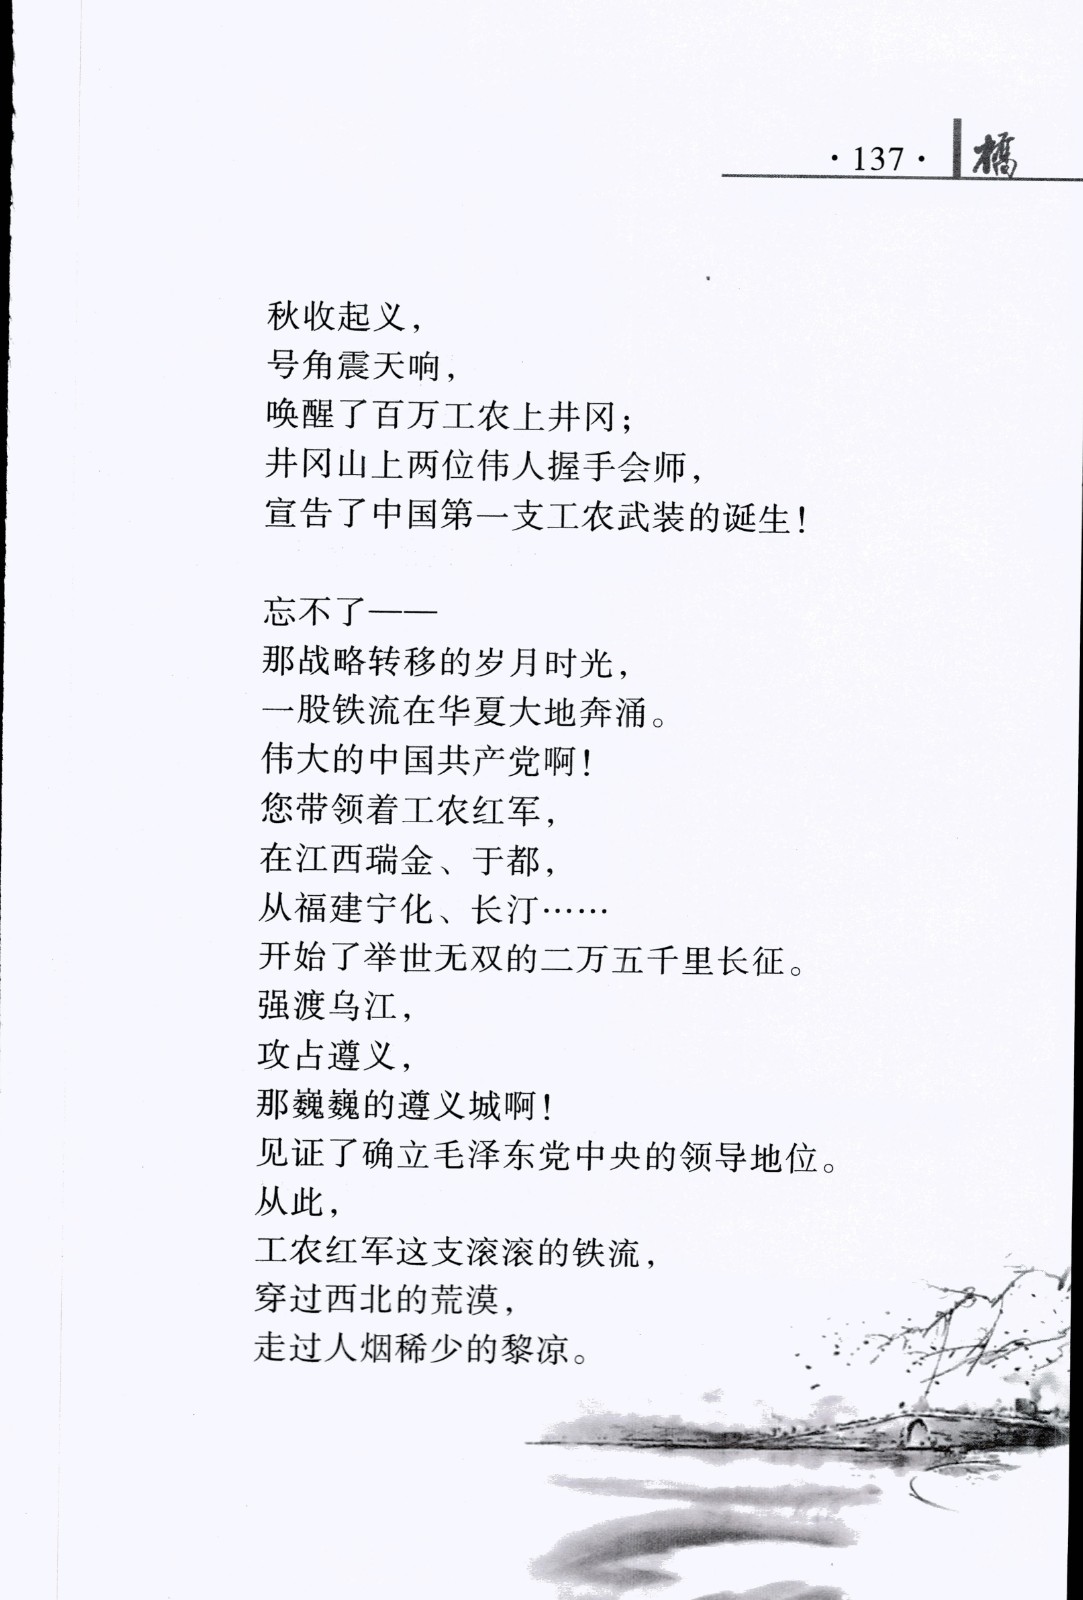 ·137· 橋
秋收起义，
号角震天响，
唤醒了百万工农上井冈；
井冈山上两位伟人握手会师，
宣告了中国第一支工农武装的诞生！
忘不了——
那战略转移的岁月时光，
一股铁流在华夏大地奔涌。
伟大的中国共产党啊！
您带领着工农红军，
在江西瑞金、于都，
从福建宁化、长汀……
开始了举世无双的二万五千里长征。
强渡乌江，
攻占遵义，
那巍巍的遵义城啊！
见证了确立毛泽东党中央的领导地位。
从此，
工农红军这支滚滚的铁流，
穿过西北的荒漠，
走过人烟稀少的黎凉。